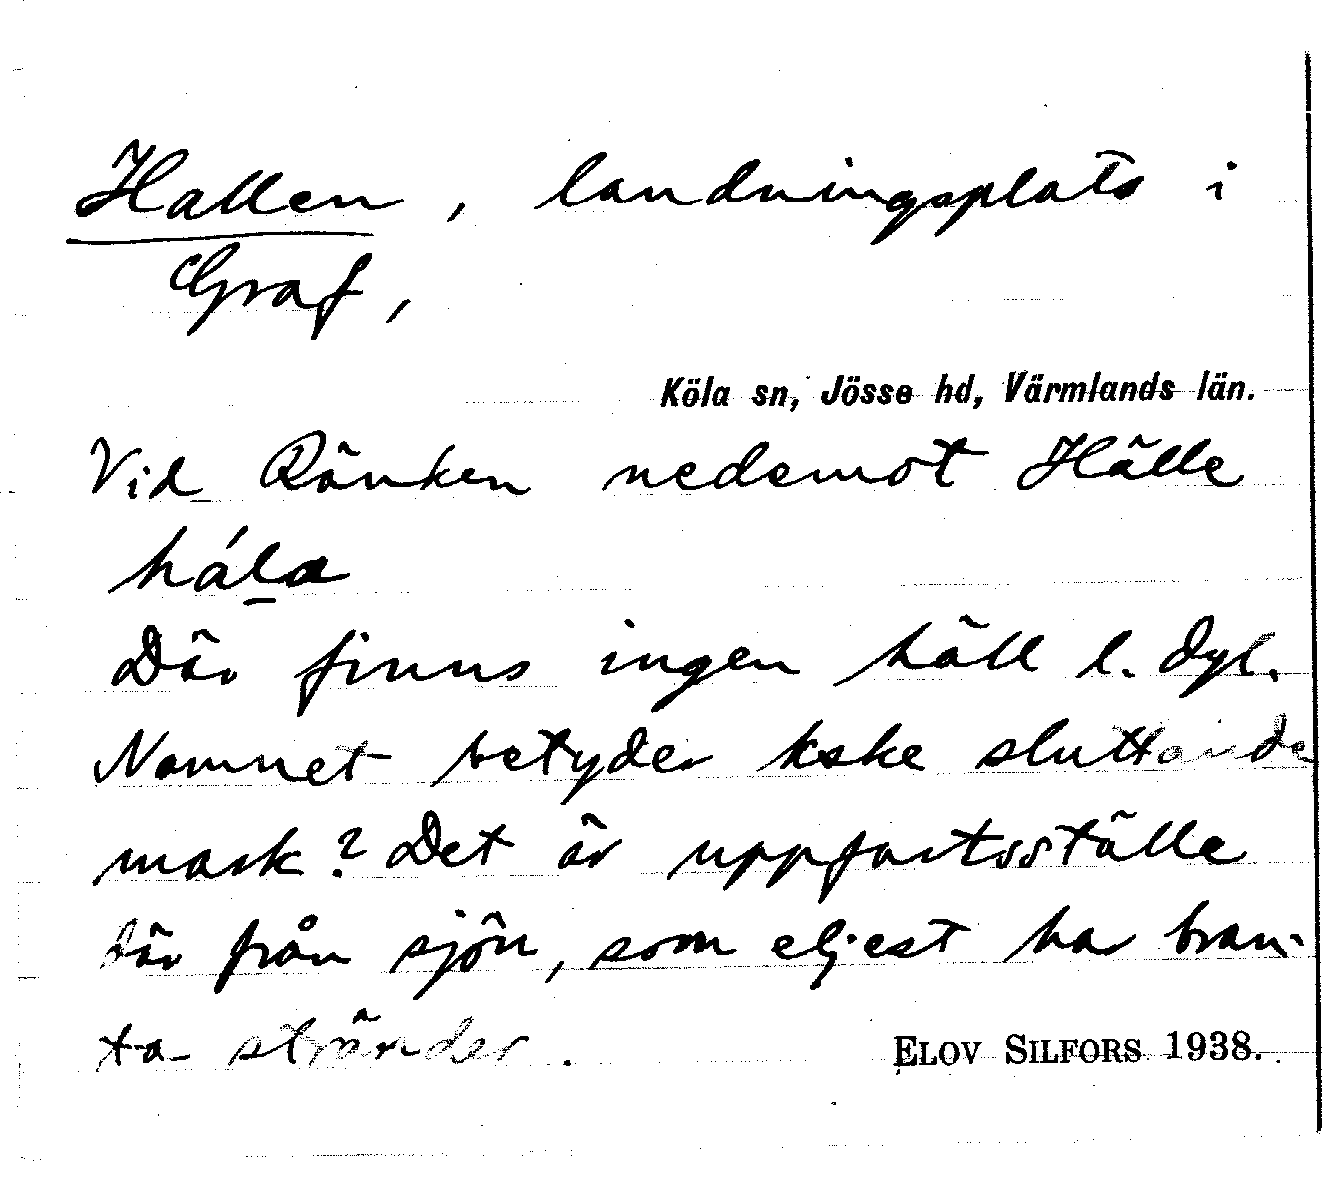 Hallen, landningsplats i
Graf,
Köla sn, Jösse hd, Värmlands län.
Vid Ränken nedemot Hälle
há̱la
Där finns ingen häll l. dyl.
Namnet betyder kske sluttande
mark? Det är uppfartsställe
där från sjön, som eljest har bran-
ta stränder.
ELOV SILFORS 1938.